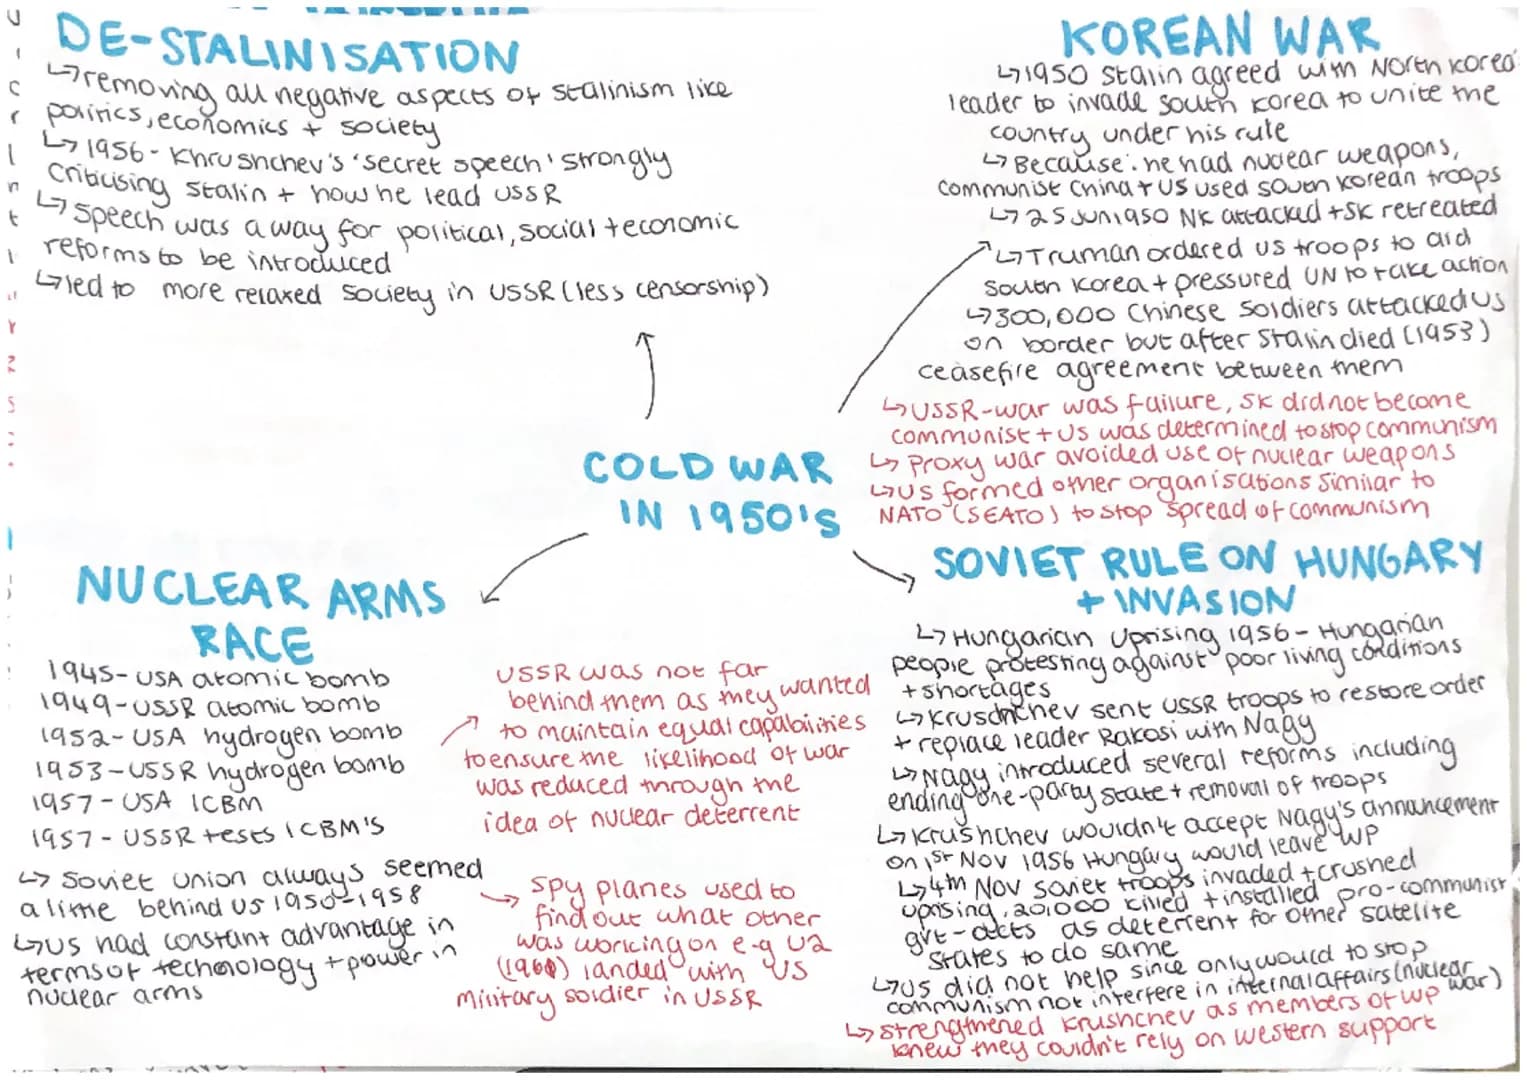 DE-STALINISATION
↳ removing all negative aspects of stalinism like
politics, economics + society
↳ 1956 - Khrushchev's 'secret speech' strongly
criticising stalin + how he lead USSR
↳ speech was a way for political, social + economic
reforms to be introduced
↳ led to more relaxed society in USSR (less censorship)
KOREAN WAR
↳ 1950 stalin agreed with North Korea
leader to invade south korea to unite the
country under his rule
↳ Because: he had nuclear weapons,
communist China + US used south korean troops
↳ 25 Jun 1950 NK attacked + SK retreated
↳ Truman ordered US troops to aid
south korea + pressured UN to take action
↳ 300,000 Chinese soldiers attacked US
on border but after stalin died (1953)
ceasefire agreement between them
↳ USSR-war was failure, SK did not become
communist + US was determined to stop communism
↳ Proxy war avoided use of nuclear weapons
↳ US formed other organisations similar to
NATO (SEATO) to stop spread of communism
COLD WAR
IN 1950'S
NUCLEAR ARMS
RACE
1945 - USA atomic bomb
1949 - USSR atomic bomb
1952 - USA hydrogen bomb
1953 - USSR hydrogen bomb
1957 - USA ICBM
1957 - USSR tests ICBM'S
↳ Soviet union always seemed
a little behind US 1950-1958
↳ US had constant advantage in
terms of technology + power in
nuclear arms
USSR was not far
behind them as they wanted
to maintain equal capabilities
to ensure the likelihood of war
was reduced through the
idea of nuclear deterrent
spy planes used to
find out what other
was working on e-g U2
(1960) landed with US
military soldier in USSR
SOVIET RULE ON HUNGARY
+ INVASION
↳ Hungarian Uprising 1956 - Hungarian
people protesting against poor living conditions
+ shortages
↳ Kruschchev sent USSR troops to restore order
+ replace leader Rakosi with Nagy
↳ Nagy introduced several reforms including
ending one-party state + removal of troops
↳ Krushchev wouldn't accept Nagy's announcement
on 1st Nov 1956 Hungary would leave WP
↳ 4th Nov soviet troops invaded + crushed
uprising, 20,000 killed + installed pro-communist
gvt - acts as deterrent for other satelite
states to do same
↳ US did not help since only would to stop
communism not interfere in internal affairs (nuclear war)
↳ strengthened Krushchev as members of WP
knew they couldn't rely on western support